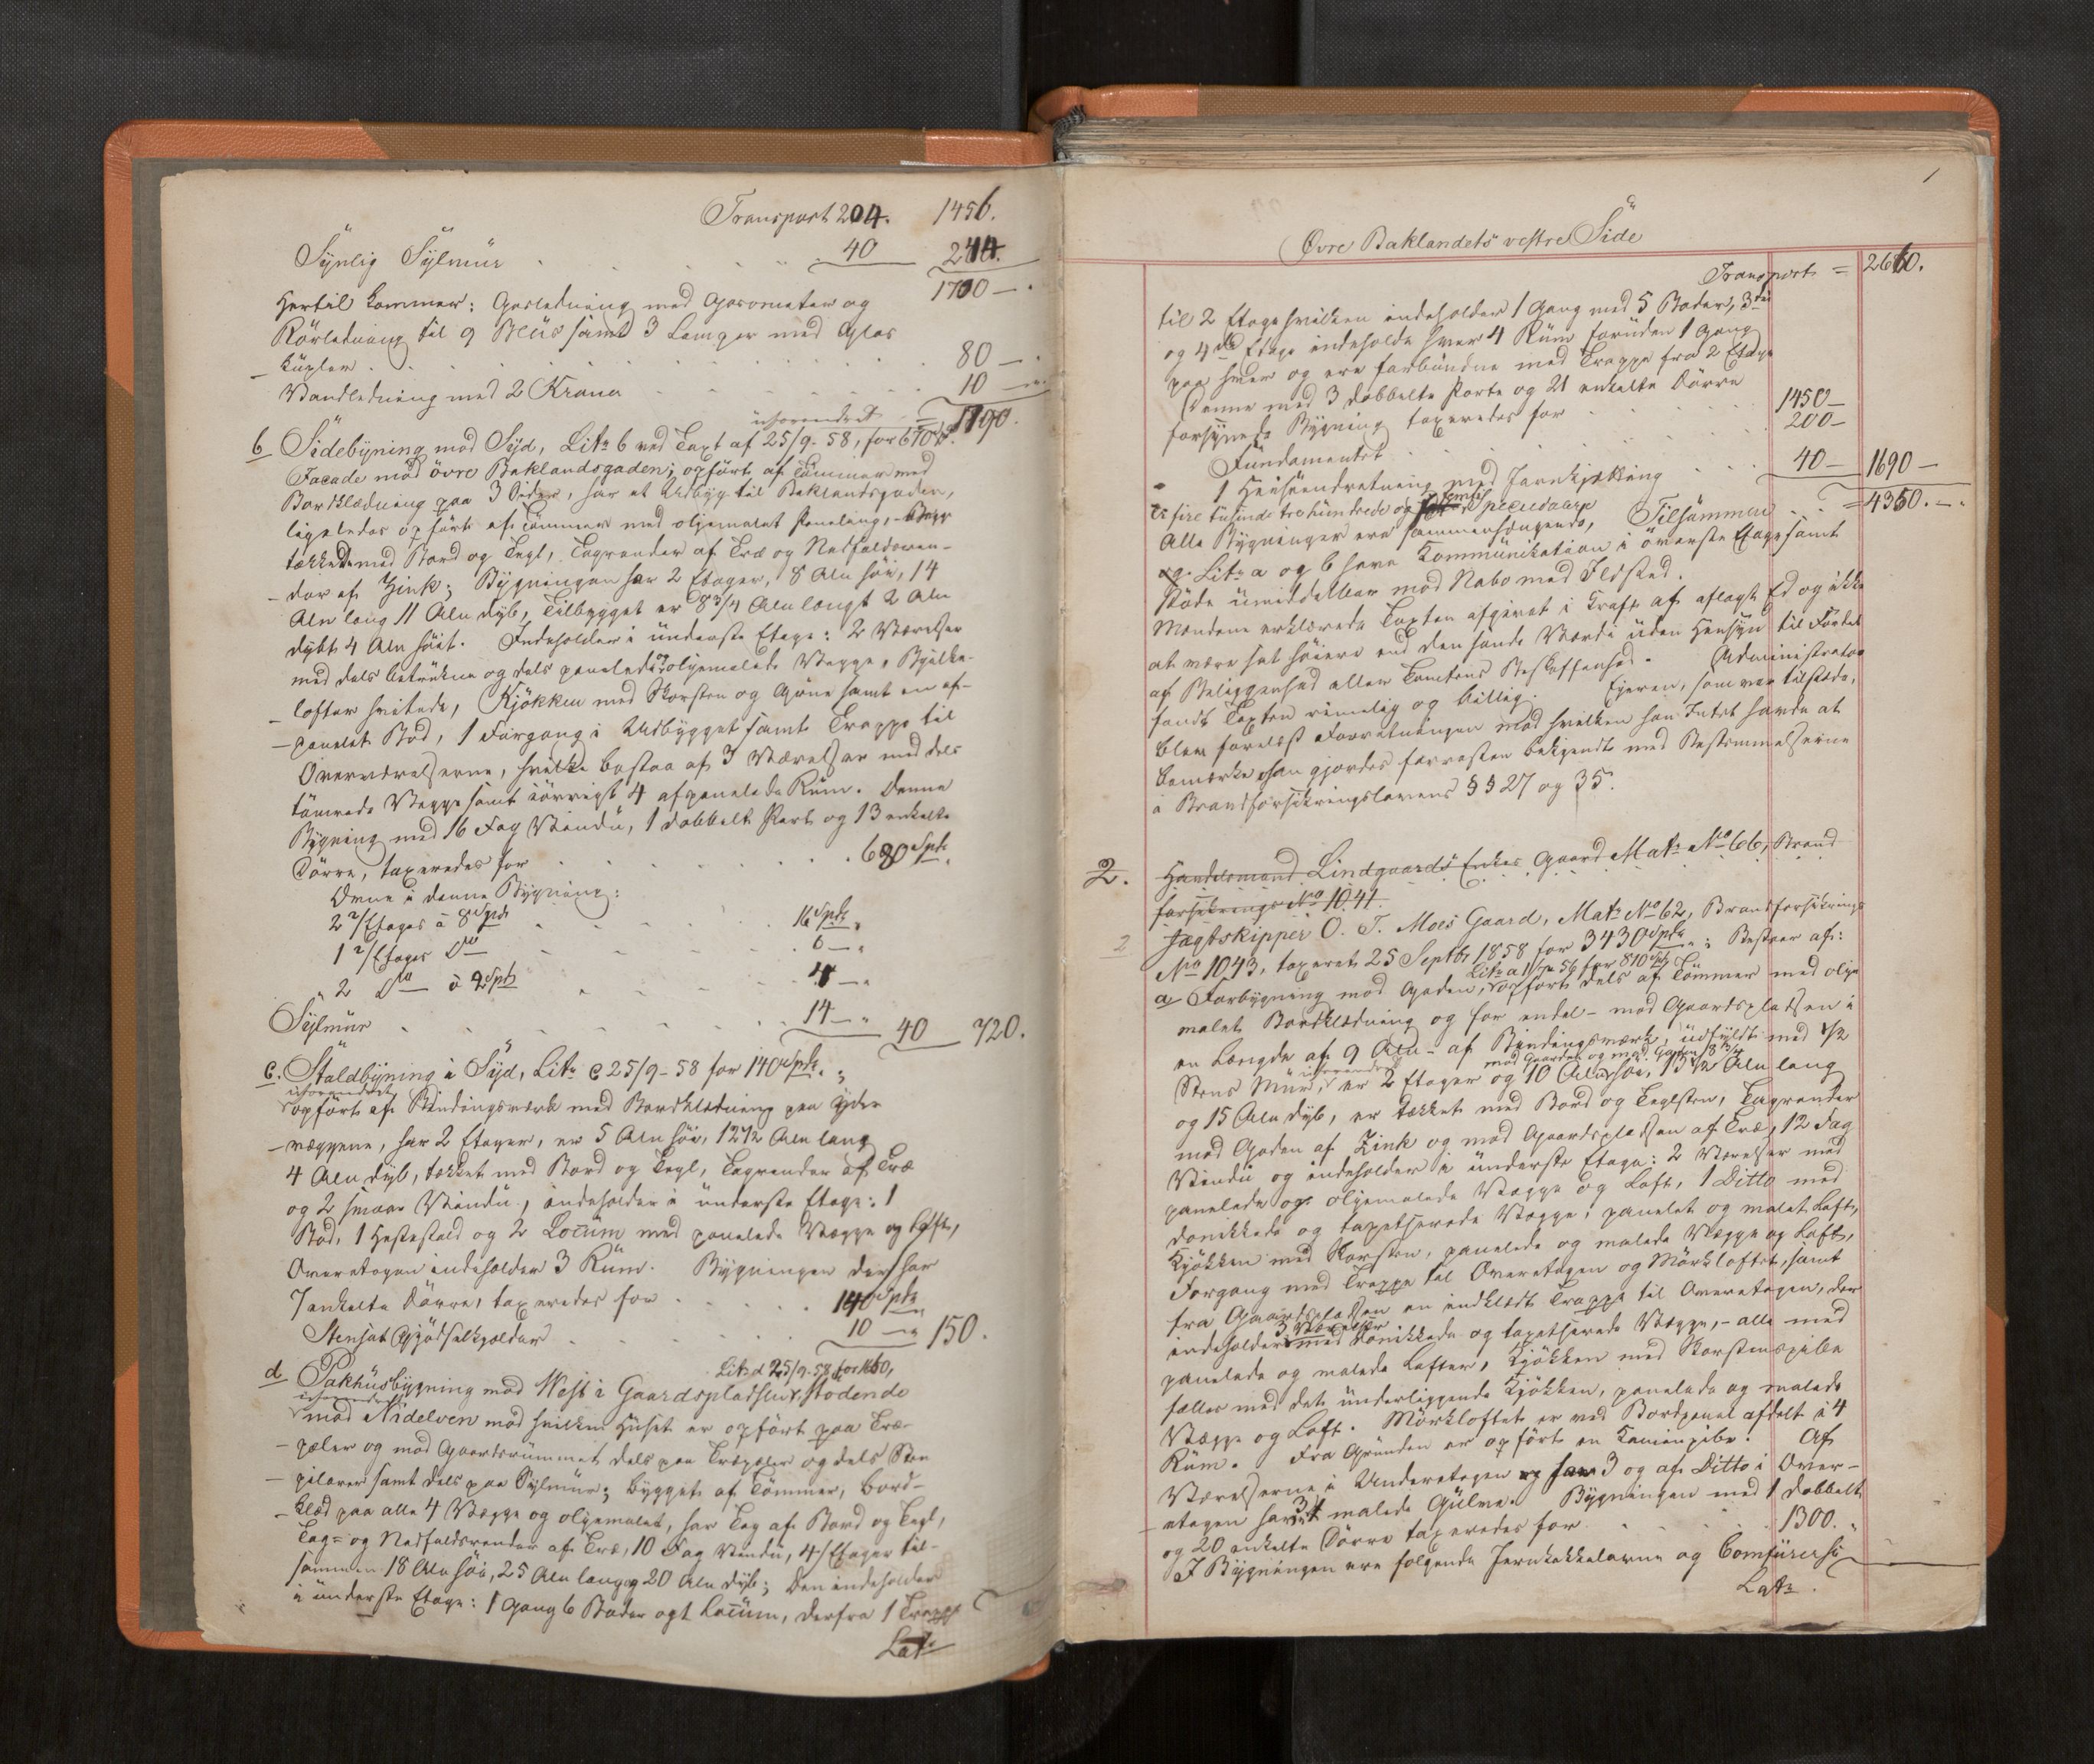 Transport 204. 1456.
Synlig Sylmur . . . . 40 244.
1700 —
Hertil kommer: Gasledning med Gasometer og
Rörledning til 9 Blus samt 3 Lamper med Glas
kupler . . . . . . . . 80 —
Vandledning med 2 Kraner . . . . . 10 —
uforandret = 1790.
b Sidebygning mod Syd, Litr b ved Taxt af 25/9-58, for 670 Spd.
Facade mod övre Baklandsgaden; opfört af Tömmer med
Bordklædning paa 3 Sider, har et Udbyg til Baklandsgaden,
ligeledes opfört af Tömmer med oljemalet Paneling,
tækket med Bord og Tegl, Tagrender af Træ og Nedfaldsren-
der af Zink; Bygningen har 2 Etager, 8 Alen höi, 14
Alen lang 11 Alen dyb, Tilbygget er 8 3/4 Alen langt 2 Alen
dybt 4 Alen höit. Indeholder i underste Etage: 2 Værelser
med dels betrukne og dels panelede og oljemalede Vægge, Bjelke-
lofter hvitede, Kjökken med Skorsten og Grue samt en af-
panelet Bod, 1 Forgang i Udbygget samt Trappe til
Overværelserne, hvilke bestaa af 3 Værelser med dels
tömrede Vægge samt iövrigt 4 afpanelede Rum. Denne
Bygning med 16 Fag Vindu, 1 dobbelt Port og 13 enkelte
Dörre, taxeredes for . . . . . . 680 Spd.
Ovne i denne Bygning:
2 2/Etages à 8 Spd . . . . 16 Spd.
1 2/Etages Do . . . . 6 — "
2 Do à 2 Spd . . . . 4 — "
Sylmur . . . . . . 14 — " 40 720.
c. Staldbygning i Syd, Litr c 25/9-58 for 140 Spd. ;
uforandret
opfört af Bindingsværk med Bordklædning paa Yder
væggene, har 2 Etager, er 5 Alen höi, 12 1/2 Alen lang
4 Alen dyb, tækket med Bord og Tegl, Tagrender af Træ
og 2 smaae Vindu, indeholder i underste Etage: 1
Bod, 1 Hestestald og 2 Locum med panelede Vægge og Loft,
Overetagen indeholder 3 Rum. Bygningen der har
7 enkelte Dörre, taxeredes for . . . . 140 Spd
Stensat Gjödselkjelder . . . . 10 — " 150.
Litr d 25/9-58 for 1650,
d Pakhusbygning mod Vest i Gaardspladsen, stödende
uforandret
mod Nidelven mod hvilken Huset er opfört paa Træ-
pæler og mod Gaardsrummet dels paa Træpæler og dels Sten
pilarer samt dels paa Sylmur; bygget af Tömmer, bord-
klæd paa alle 4 Vægge og oljemalet, har Tag af Bord og Tegl,
Tag- og Nedfaldsrender af Træ, 10 Fag Vindu, 4 Etager til-
sammen 18 Alen höi, 25 Alen lang og 20 Alen dyb; den indeholder
i underste Etage: 1 Gang 6 Boder og 1 Locum, derfra 1 Trappe
Lat.
1
Övre Baklandets vestre Side
Transport = 2660.
til 2 Etage hvilken indeholder 1 Gang med 5 Boder, 3die
og 4de Etage indeholde hver 4 Rum foruden 1 Gang
paa hver og ere forbundne med Trappe fra 2 Etage
Denne med 3 dobbelte Porte og 21 enkelte Dörre
forsynede Bygning taxeredes for . . . 1450 —
Fundamentet . . . . . 200 —
1 Heiseindretning med Jernkjætting . . . 40 — 1690 —
Er fire tusinde tre hundrede og femti Speciedaler Tilsammen . . = 4350. —
Alle Bygninger ere sammenhængende,
og Litr a og b have Kommunikation i överste Etage samt
stöde umiddelbar mod Nabo med Ildsted.
Mændene erklærede Taxten afgivet i Kraft af aflagt Ed og ikke
at være sat höiere end den sande Værdi uden Hensyn til Fordel
af Beliggenhed eller Tomtens Beskaffenhed. Administrator
fandt Taxten rimelig og billig. Eieren, som var tilstede,
blev forelæst Forretningen mod hvilken han Intet havde at
bemærke. Han gjordes forresten bekjendt med Bestemmelserne
i Brandforsikringslovens §§ 27 og 35.
2. Handelsmand Lindgaards Enkes Gaard Matr No 66, Brand
forsikrings No 1041.
2 Jagtskipper O. T. Moes Gaard, Matr No 62, Brandforsikrings
No 1043, taxeret 25 Septbr 1858 for 3430 Spd. ; Bestaar af:
a Forbygning mod Gaden, opfört dels af Tömmer med olje
malet Bordklædning og for endel - mod Gaardspladsen i
en Længde af 9 Alen - af Bindingsværk, udfyldt med 1/2
mod Gaarden og mod Gaden 8 3/4
uforandret
Stens Mur, er 2 Etager og 10 Alen höi, 13 1/2 Alen lang
og 15 Alen dyb, er tækket med Bord og Teglsten, Tagrender
mod Gaden af Zink og mod Gaardspladsen af Træ, 12 Fag
Vindu og indeholder i underste Etage: 2 Værelser med
panelede og oljemalede Vægge og Loft, 1 Ditto med
donikkede og tapetserede Vægge, panelet og malet Loft,
Kjökken med Skorsten, panelede og malede Vægge og Loft,
Forgang med Trappe til Overetagen og Mörkloftet, samt
fra Gaardspladsen en indklædt Trappe til Overetagen, der
3 Værelser
indeholder med donikkede og tapetserede Vægge, - alle med
panelede og malede Lofter, Kjökken med Skorstenspibe
fælles med det underliggende Kjökken, panelede og malede
Vægge og Loft. Mörkloftet er ved Bordpanel afdelt i 4
Rum. Fra Grunden er opfört en Kaminpibe. Af
Værelserne i Underetagen have 3 og af Ditto i Over-
etagen have 3 malede Gulve. Bygningen med 1 dobbelt
og 20 enkelte Dörre taxeredes for . . . . 1300.
I Bygningen ere folgende Jernkakkelovne og Comfurer
Latr.